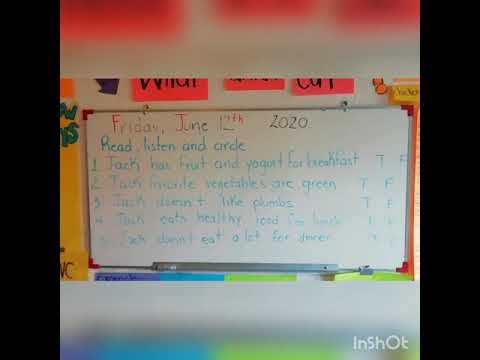 What Can
Friday, June 12th 2020.
Read, listen and circle
1 Jack has fruit and yogurt for breakfast T F
2 Jack favorite vegetables are green T F
3 Jack doesn't like plumbs. T F
4 Jack eats healthy food for lunch T F
5 Jack doesn't eat a lot for dinner T F
InShOt